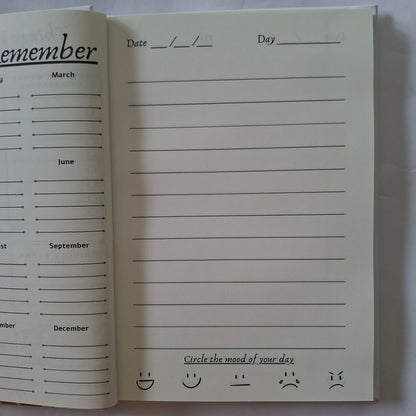 emember
March
June
September
December
Date __ /__ /__ Day ________
Circle the mood of your day